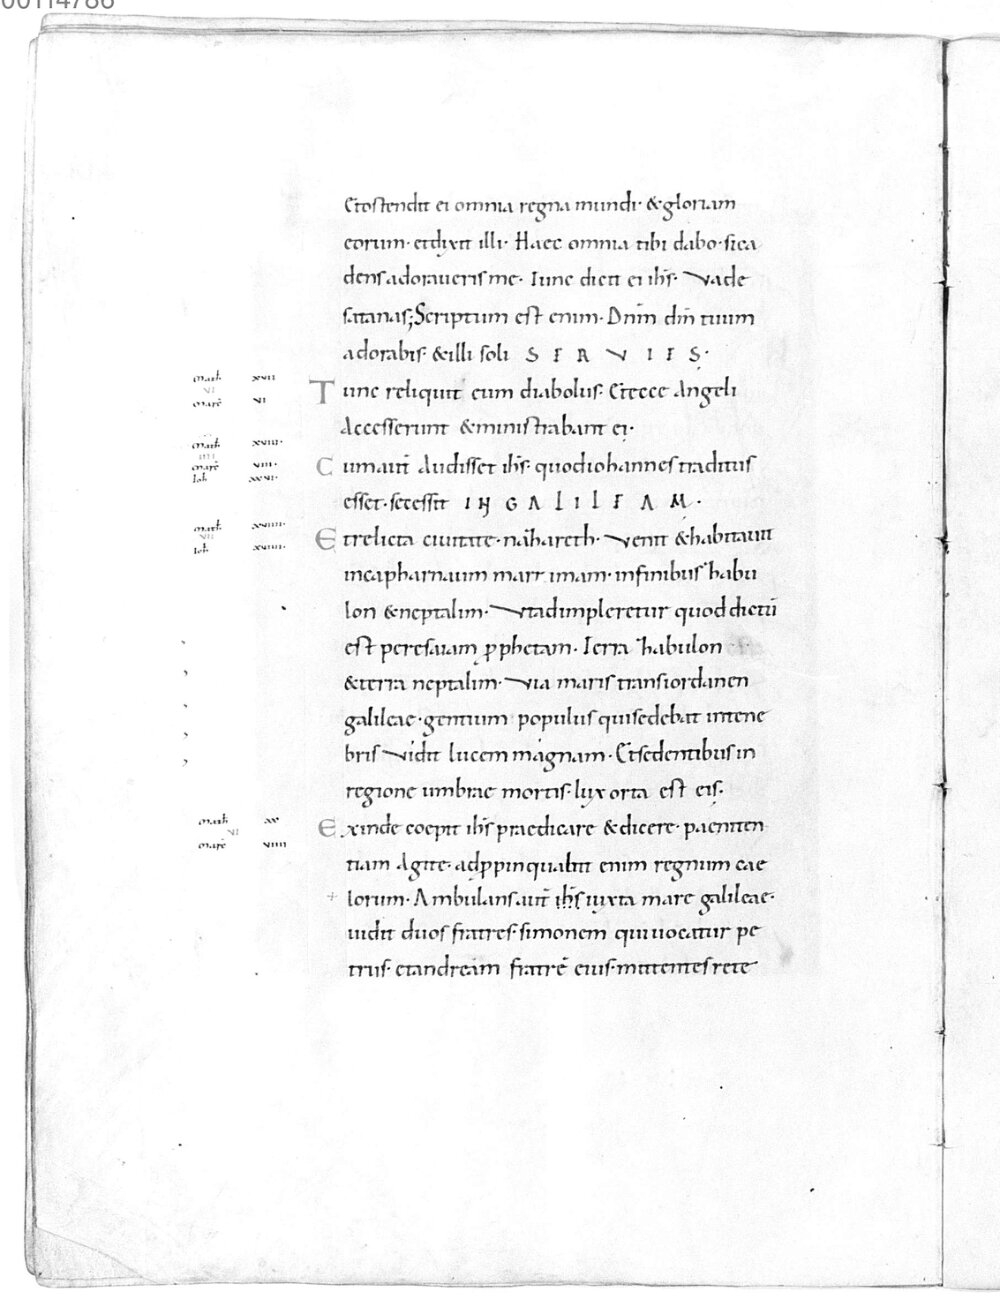 00114786
Etostendit ei omnia regna mundi· &gloriam
eorum· etdixit illi· Haec omnia tibi dabo· sica
densadoraueris me· Tunc dicit ei ihs̄· Vade
satanas; Scriptum est enim· Dnm̄ dm̄ tuum
adorabis· &illi soli SERVIES·
math xvii
VI
marc̄ vi
Tunc reliquit eum diabolus· Etecce Angeli
Accesserunt &ministrabant ei·
math xviii·
IIII
marc̄ viii·
Ioh
Cumaut̄ Audisset ihs̄· quodiohannestraditus
esset· secessit IN GALILEAM·
math xviiii·
VII
Ioh
Etrelicta ciuitate· nazareth· Venit &habitauit
incapharnaum maritimam· infinibus zabu
lon &neptalim· Vtadimpleretur quoddictū
est peresaiam ꝓphetam· Terra zabulon
&terra neptalim· Via maris transiordanen
galileae· gentium populus quisedebat intene
bris Vidit lucem magnam· Etsedentibusin
regione umbrae mortis· lux orta est eis·
math xx
VI
marc̄ viiii
Exinde coepit ihs̄ praedicare &dicere· paeniten
tiam Agite· adꝓpinquabit enim regnum cae
lorum· Ambulansaut̄ ihs̄ iuxta mare galileae·
uidit duos fratres· simonem quiuocatur pe
trus· etandream fratrē eius· mittentesrete